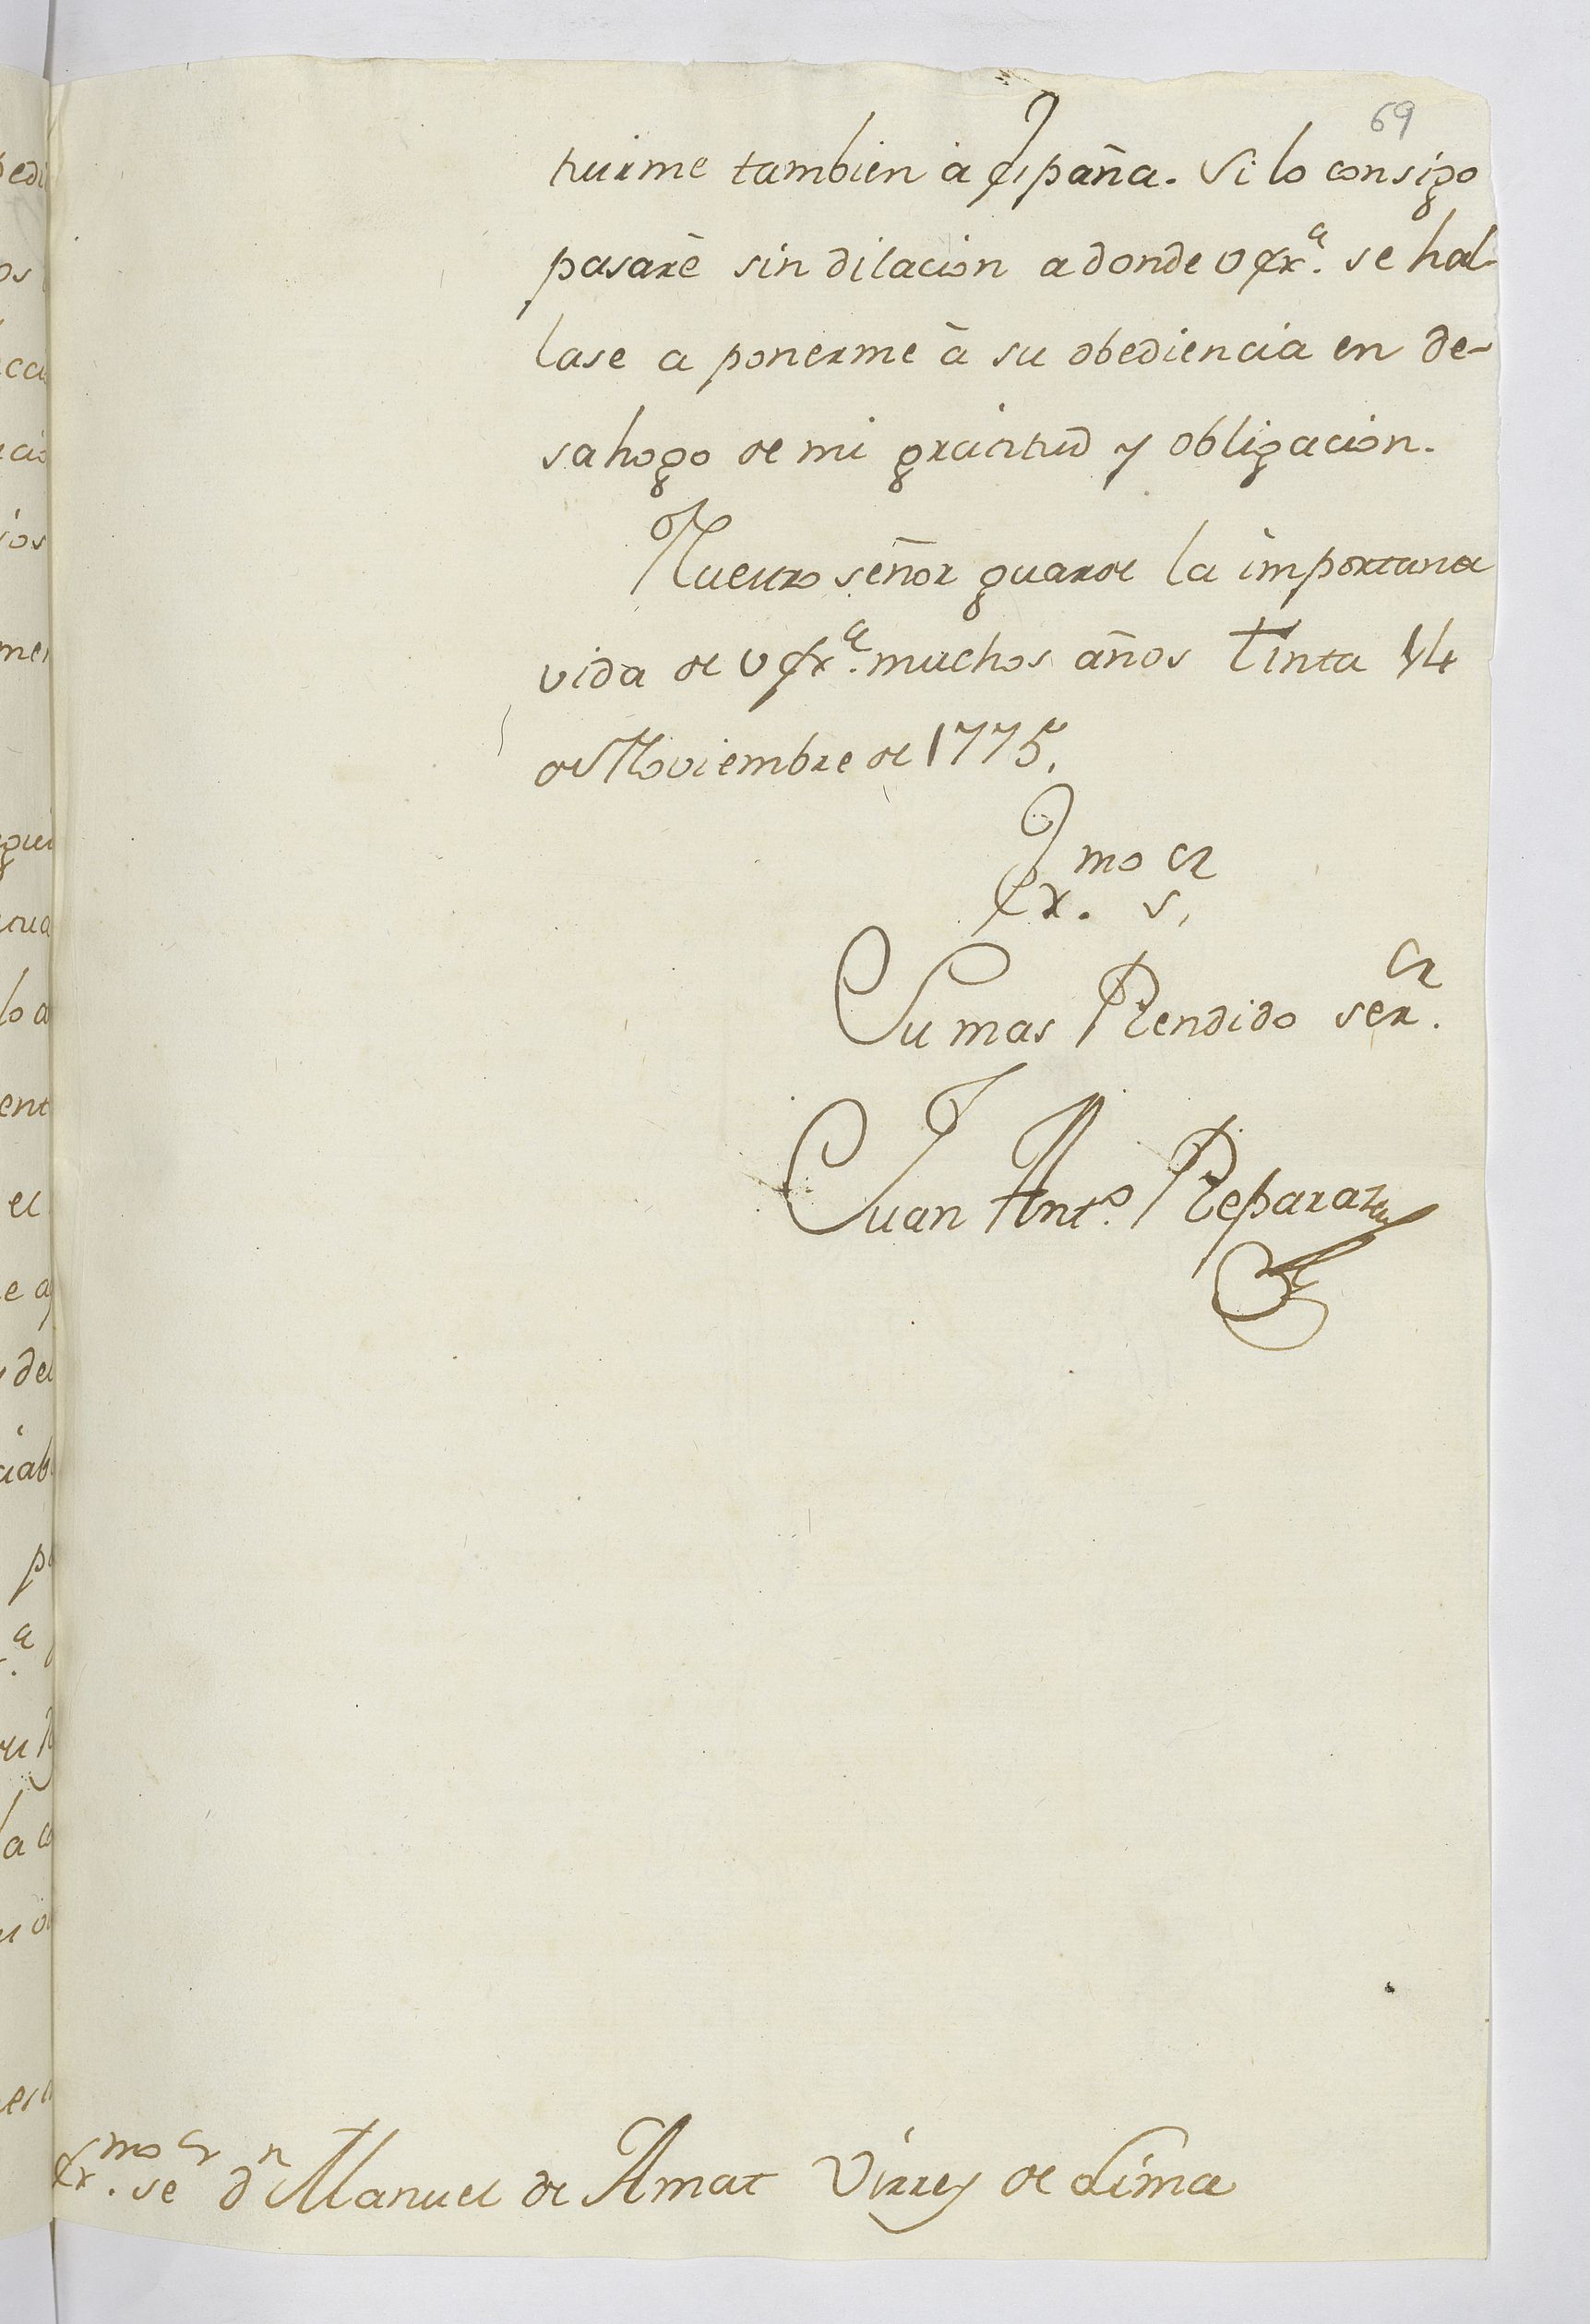 69
tuirme tambien à España. Si lo consigo
pasarè sin dilacion a donde VExª. se hal-
lase a ponerme à su obediencia en de-
sahogo de mi gratitud y obligacion.
Nuestro señor guarde la importana
vida de VExª. muchos años Tinta 14
de Noviembre de 1775.
Exmo. Sr.
Su mas Rendido ser.or
Juan Antº. Reparaz
Exmo. Seor Dn Manuel de Amat Virrey de Lima